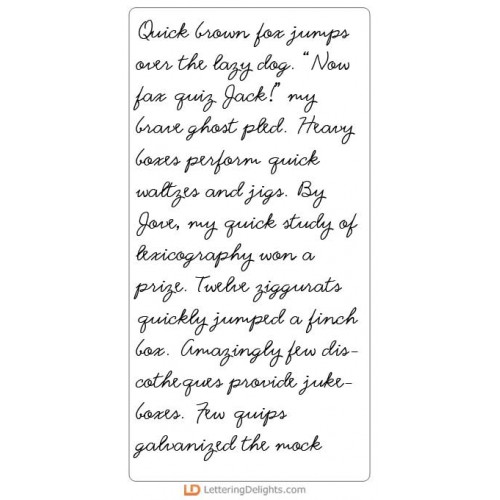 Quick brown fox jumps
over the lazy dog. "Now
fax quiz Jack!" my
brave ghost pled. Heavy
boxes perform quick
waltzes and jigs. By
Jove, my quick study of
lexicography won a
prize. Twelve ziggurats
quickly jumped a finch
box. Amazingly few dis-
cotheques provide juke-
boxes. Few quips
galvanized the mock
LD LetteringDelights.com